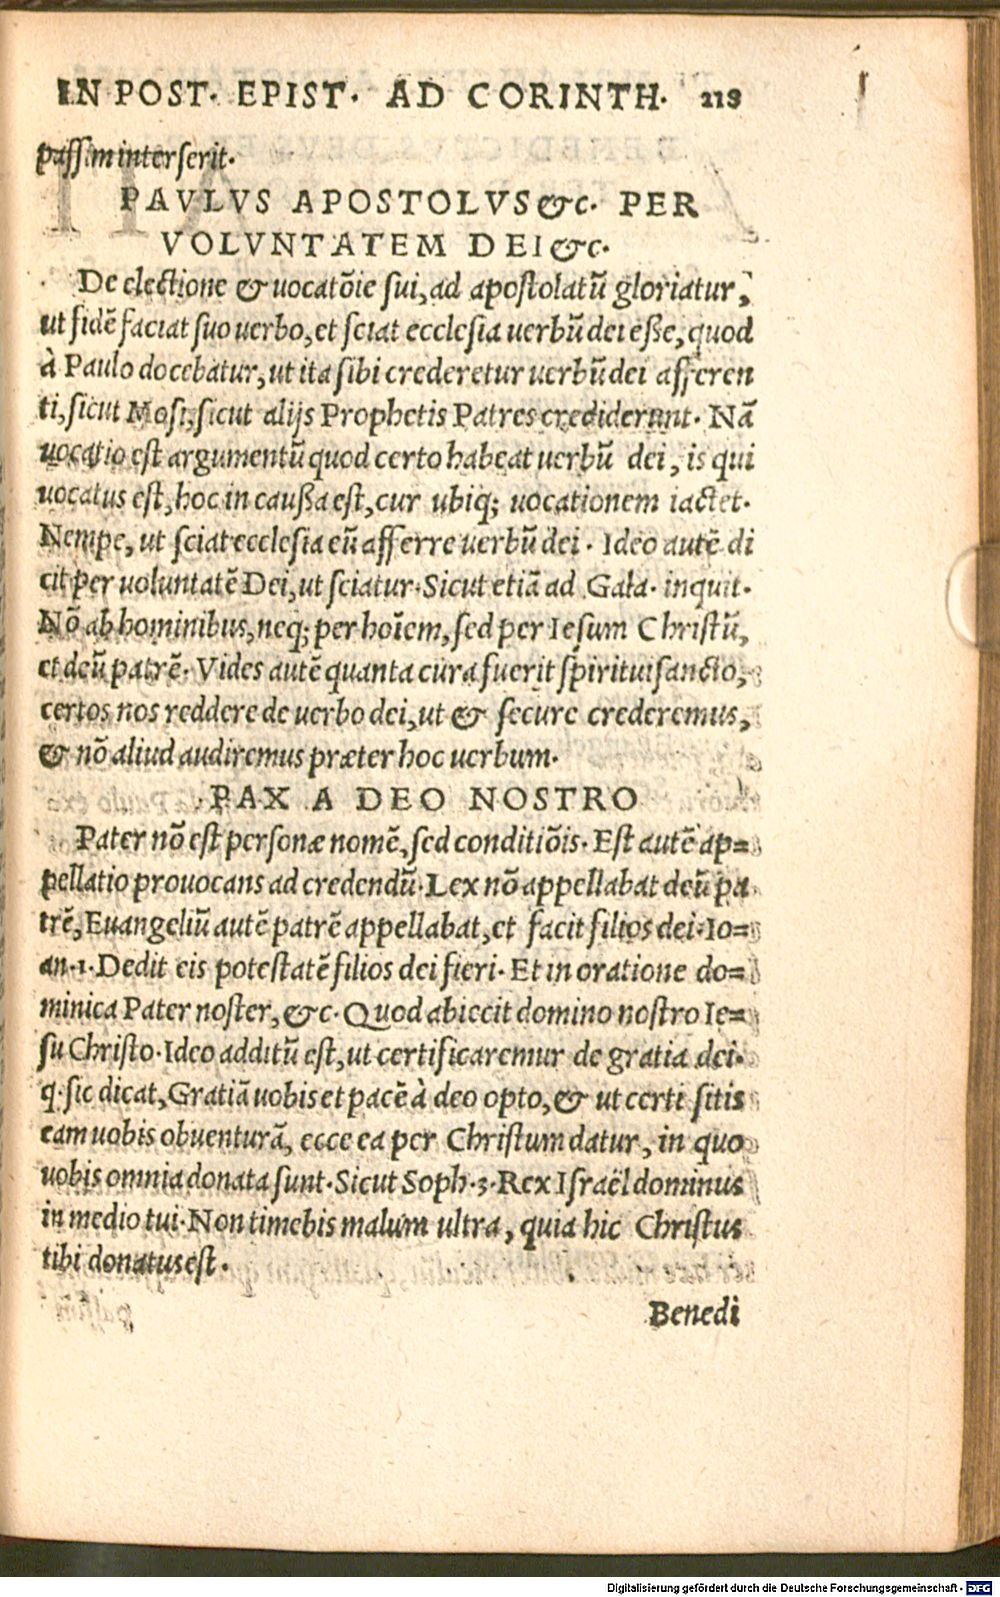 IN POST. EPIST. AD CORINTH. 218
passim inter serit.
PAVLVS APOSTOLVS &c. PER
VOLVNTATEM DEI &c.
De electione & uocatõie sui, ad apostolatũ gloriatur,
ut fidẽ faciat suo uerbo, et sciat ecclesia uerbũ dei eße, quod
à Paulo docebatur, ut ita sibi crederetur uerbũ dei afferen
ti, sicut Mosi, sicut alijs Prophetis Patres crediderunt. Nã
uocatio est argumentũ quod certo habeat uerbũ dei, is qui
uocatus est, hoc in caußa est, cur ubiq; uocationem iactet.
Nempe, ut sciat ecclesia eũ afferre uerbũ dei. Ideo autẽ di
cit per uoluntatẽ Dei, ut sciatur. Sicut etiã ad Gala. inquit.
Nõ ab hominibus, neq; per hoĩem, sed per Iesum Christũ,
et deũ patrẽ. Vides autẽ quanta cura fuerit spiritui sancto,
certos nos reddere de uerbo dei, ut & secure crederemus,
& nõ aliud audiremus præter hoc uerbum.
PAX A DEO NOSTRO
Pater nõ est personæ nomẽ, sed conditiõis. Est autẽ ap=
pellatio prouocans ad credendũ. Lex nõ appellabat deũ pa
trẽ, Euangeliũ autẽ patrẽ appellabat, et facit filios dei. Io=
an. 1. Dedit eis potestatẽ filios dei fieri. Et in oratione do=
minica Pater noster, &c. Quod abiecit domino nostro Ie=
su Christo. Ideo additũ est, ut certificaremur de gratia dei.
q. sic dicat, Gratiã uobis et pacẽ à deo opto, & ut certi sitis
eam uobis obuenturã, ecce ea per Christum datur, in quo
uobis omnia donata sunt. Sicut Soph. 3. Rex Israël dominus
in medio tui. Non timebis malum ultra, quia hic Christus
tibi donatus est.
Benedi
Digitalisierung gefördert durch die Deutsche Forschungsgemeinschaft - DFG